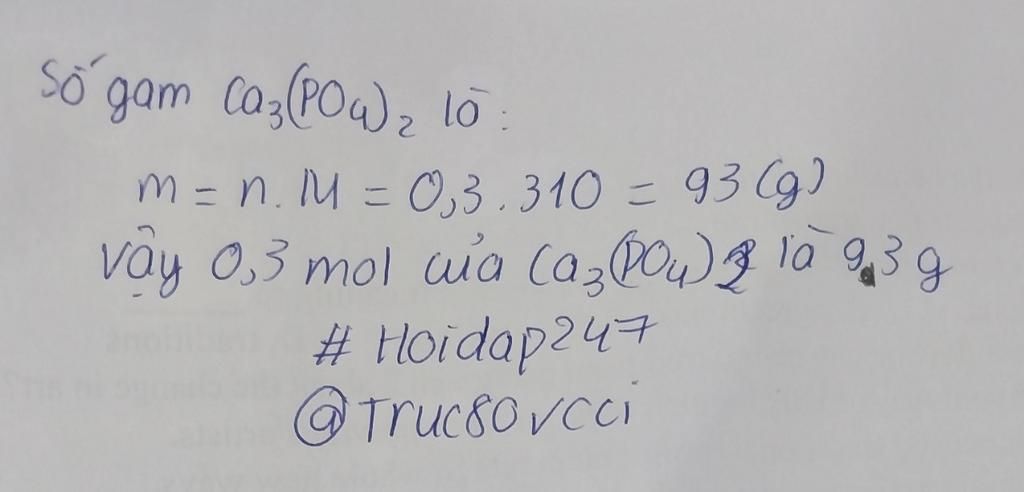 Số gam Ca₃(PO₄)₂ là:
m = n. M = 0,3. 310 = 93 (g)
vậy 0,3 mol của Ca₃(PO₄)2 là 93 g
# Hoidap247
@Truc80vcci